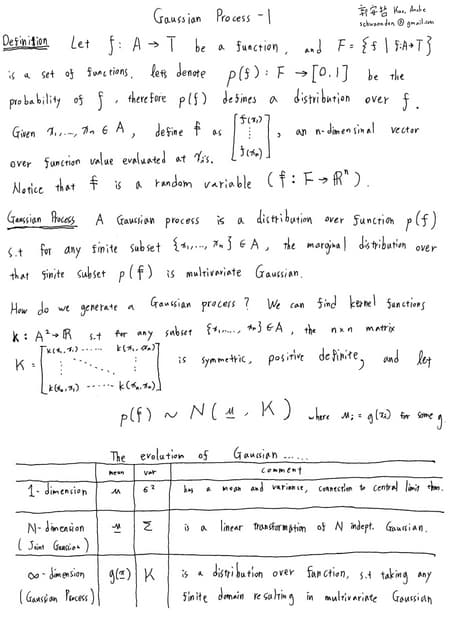 Gaussian Process -1
郭安哲 Kuo, Anche
schwannden @ gmail.com
Definition Let f: A → T be a function, and F = {f | f:A→T}
is a set of functions, lets denote p(f): F → [0,1] be the
probability of f, therefore p(f) defines a distribution over f.
Given x₁,..., xₙ ∈ A, define f as [f(x₁) ⋮ f(xₙ)], an n-dimensinal vector
over function value evaluated at xᵢs.
Notice that f is a random variable (f: F → ℝⁿ).
Gaussian Process A Gaussian process is a distribution over function p(f)
s.t for any finite subset {x₁,..., xₙ} ∈ A, the marginal distribution over
that finite subset p(f) is multivariate Gaussian.
How do we generate a Gaussian process? We can find kernel functions
k: A² → ℝ s.t for any subset {x₁,..., xₙ} ∈ A, the n×n matrix
K = [k(x₁,x₁) ...... k(x₁,xₙ) ⋮ ⋱ ⋮ k(xₙ,x₁) ...... k(xₙ,xₙ)] is symmetric, positive definite, and let
p(f) ~ N(μ, K) where μᵢ = g(xᵢ) for some g
The evolution of Gaussian ......
mean var comment
1-dimension μ σ² has a mean and variance, connection to central limit thm.
N-dimension μ Σ is a linear transformation of N indept. Gaussian.
(Joint Gaussian)
∞-dimension g(x) K is a distribution over function, s.t taking any
(Gaussian Process) finite domain resulting in multivariate Gaussian